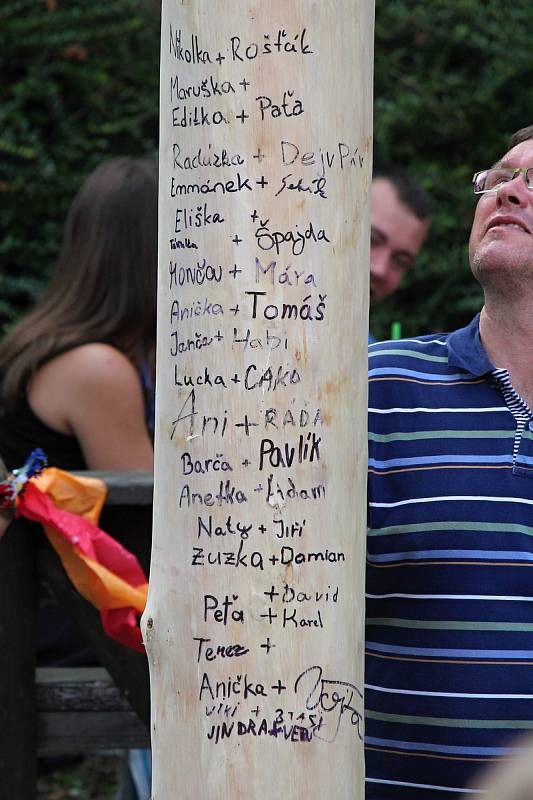 Nikolka + Rošťák
Maruška +
Editka + Paťa
Radúzka + Dejv
Emmánek +
Eliška +
+ Špajda
Mončou + Mára
Anička + Tomáš
Janča + Habi
Lucka + CAKO
Ani + RÁDA
Barča + Pavlík
Anetka + Adam
Naty + Jiří
Zuzka + Damian
+ David
Peťa + Karel
Terez +
Anička + Vojta
Viki +
JINDRA +